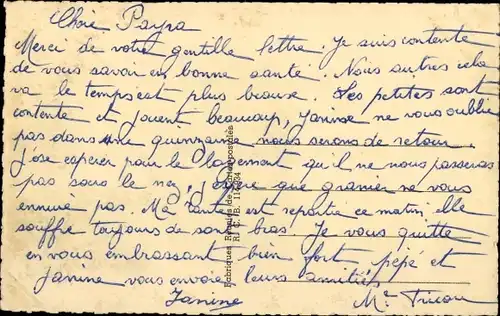 Chère Payra
Merci de votre gentille lettre je suis contente
de vous savoir en bonne santé. Nous autres cela
va le temps est plus beaux. Les petites sont
contente et jouent beaucoup, Janine ne vous oublie
pas dans une quinzaine nous serons de retour.
j'ose esperer pour le logement qu'il ne nous passeras
pas sous le nez, j'espère que granier ne vous
ennuie pas. Ma tante est repartie ce matin elle
souffre toujours de son bras. Je vous quitte
en vous embrassant bien fort pépé et
Janine vous envoie leurs amitiés
Janine Me
Fabriques Réunies de Cartes postales
R. C. B.